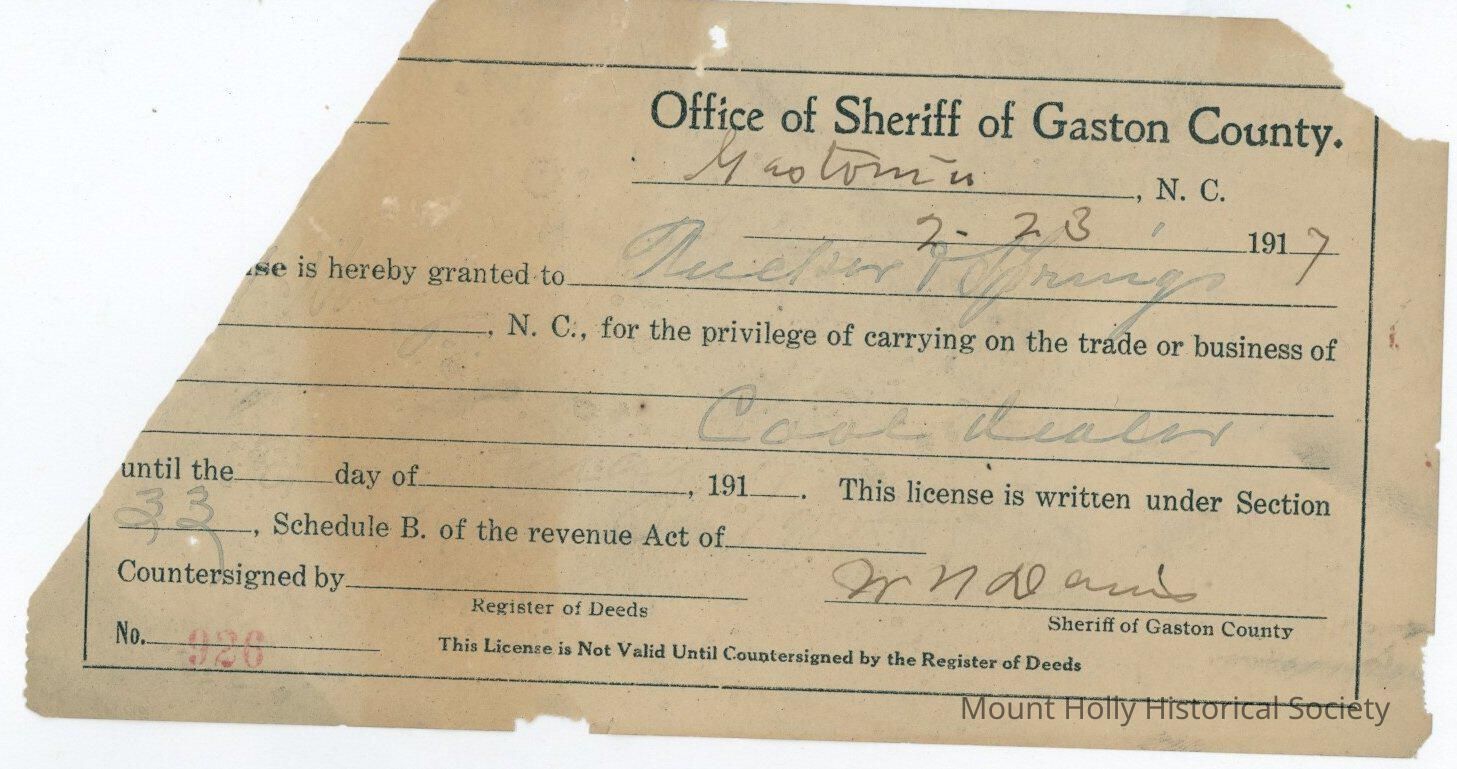 Office of Sheriff of Gaston County.
Gastonia, N. C.
2-23 1917
se is hereby granted to & Springs
, N. C., for the privilege of carrying on the trade or business of
Coal Dealer
until the day of , 191 . This license is written under Section
33, Schedule B. of the revenue Act of
Countersigned by W N Davis
Register of Deeds
Sheriff of Gaston County
No. 926
This License is Not Valid Until Countersigned by the Register of Deeds
Mount Holly Historical Society